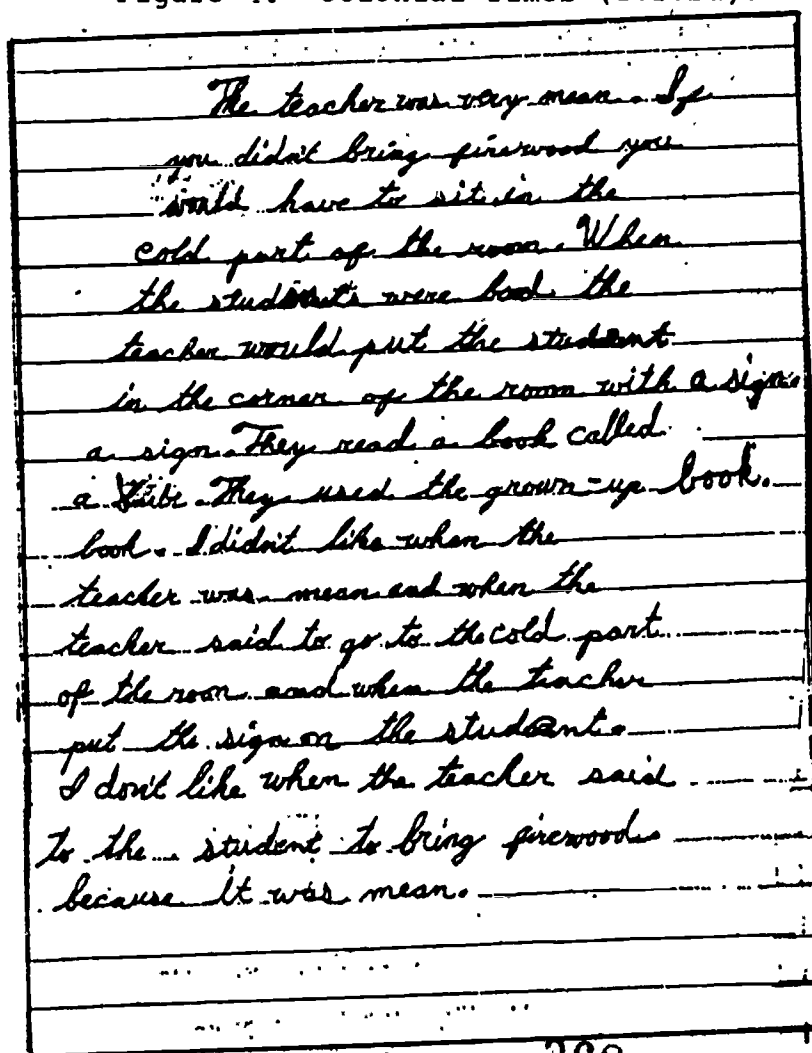 The teacher was very mean. If
you didn't bring firewood you
would have to sit in the
cold part of the room. When
the students were bad the
teacher would put the student
in the corner of the room with a sign
a sign. They read a book called
a. They used the grown-up book.
book. I didn't like when the
teacher was mean and when the
teacher said to go to the cold part
of the room and when the teacher
put the sign on the student.
I don't like when the teacher said
to the student to bring firewood
because it was mean.